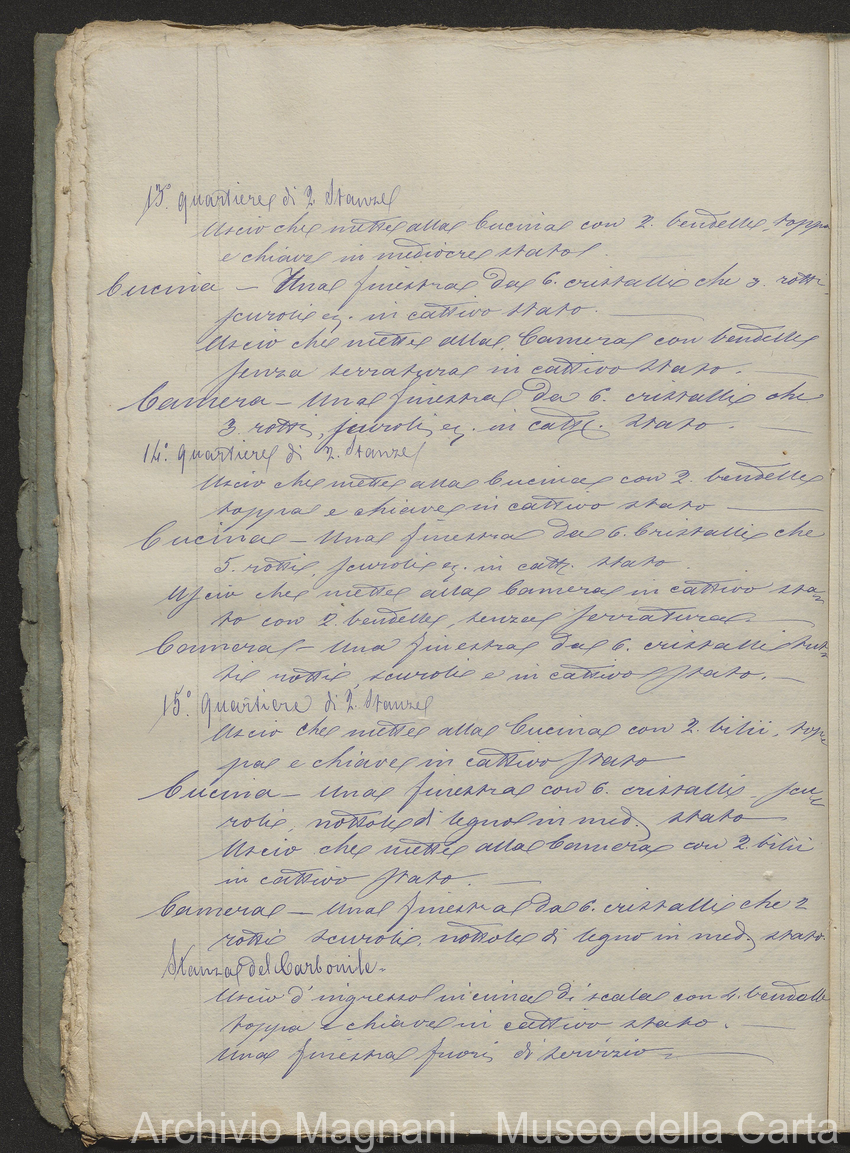 13º quartiere di 2 Stanze
Uscio che mette alla Cucina con 2. bendelle, toppa
e chiave in mediocre stato
Cucina — Una finestra da 6. cristalli che 3. rotti
scuroli eç. in cattivo stato. —
Uscio che mette alla Camera con bendelle
senza serratura in cattivo stato. —
Camera — Una finestra da 6. cristalli che
3 rotti, scuroli, eç. in catt. stato. —
14º quartiere di 2. Stanze
Uscio che mette alla Cucina con 2. bendelle
toppa e chiave in cattivo stato —
Cucina — Una finestra da 6. Cristalli che
5. rotti, scuroli eç. in catt. stato
Uscio che mette alla Camera in cattivo sta=
to con 2. bendelle, senza serratura. —
Camera — Una finestra da 6. cristalli tut=
ti rotti, scuroli e in cattivo stato. —
15º quartiere di 2. Stanze
Uscio che mette alla Cucina con 2. bilii, top=
pa e chiave in cattivo stato
Cucina — Una finestra con 6. cristalli, scu=
roli, nottole di legno in med. stato
Uscio che mette alla Camera con 2. bilii
in cattivo stato. —
Camera — Una finestra da 6. cristalli che 2
rotti scuroli, nottole di legno in med. stato.
Stanza del Carbonile.
Uscio d'ingresso in cima di scala con 4. bendelle
toppa e chiave in cattivo stato. —
Una finestra fuori di servizio —
Archivio Magnani - Museo della Carta